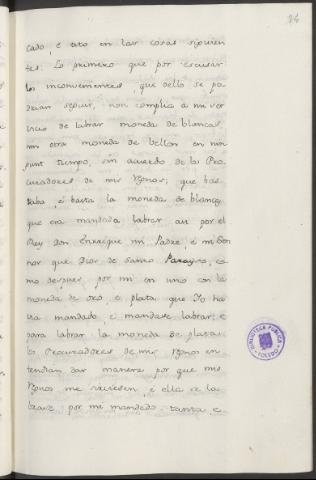 24
cado, e esto en las cosas siguien
tes. Lo primero que por escusar
los inconvenientes, que dello se po
drian seguir, non complia a mi ser
vicio de labrar moneda de blancas,
nin otra moneda de bellon en nin
gunt tiempo, sin acuerdo de los Pro
curadores de mis Regnos; que bas
taba, e basta la moneda de blanca,
que era mandada labrar asi por el
Rey Don Enrique mi Padre, e mi Señ
nor que Dios de Santo Parayso, co
mo despues por mi en uno con la
moneda de oro, e plata que Yo ha
via mandado, e mandase labrar, e
para labrar la moneda de plata
los Procuradores de mis Regnos en
tendian dar manera por que mis
Regnos me sirviesen, e ella se la
brase por mi mandado tanta, e
BIBLIOTECA PUBLICA
TOLEDO